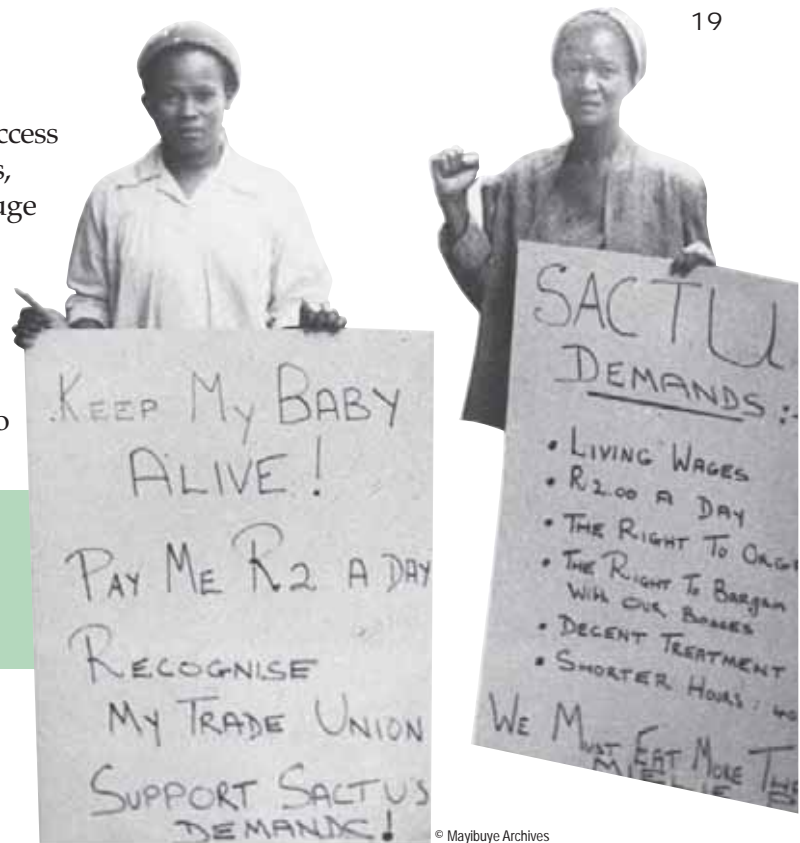 19
ccess
s,
uge
o
KEEP MY BABY
ALIVE!
PAY ME R2 A DAY
RECOGNISE
MY TRADE UNION
SUPPORT SACTU'S
DEMANDS!
SACTU
DEMANDS :-
• LIVING WAGES
• R2.00 A DAY
• THE RIGHT TO ORG
• THE RIGHT TO BARGAIN
WITH OUR BOSSES
• DECENT TREATMENT
• SHORTER HOURS: 40
WE MUST EAT MORE THA
MIELIE
© Mayibuye Archives